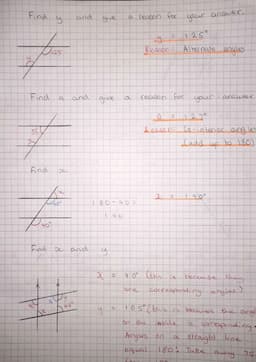 Find y and give a reason for your answer.
y = 125°
Reason: Alternate angles
125
y
Find x and give a reason for your answer
Reason: Co-interior angles
(add up to 180)
Find x
x
180 - 40 =
140
x = 140°
40°
Find x and y
x = 70° (this is because they
are corresponding angles)
y = 105° (this is because the angle
on the inside is corresponding.
Angles on a straight line
equal 180°. Take away 75